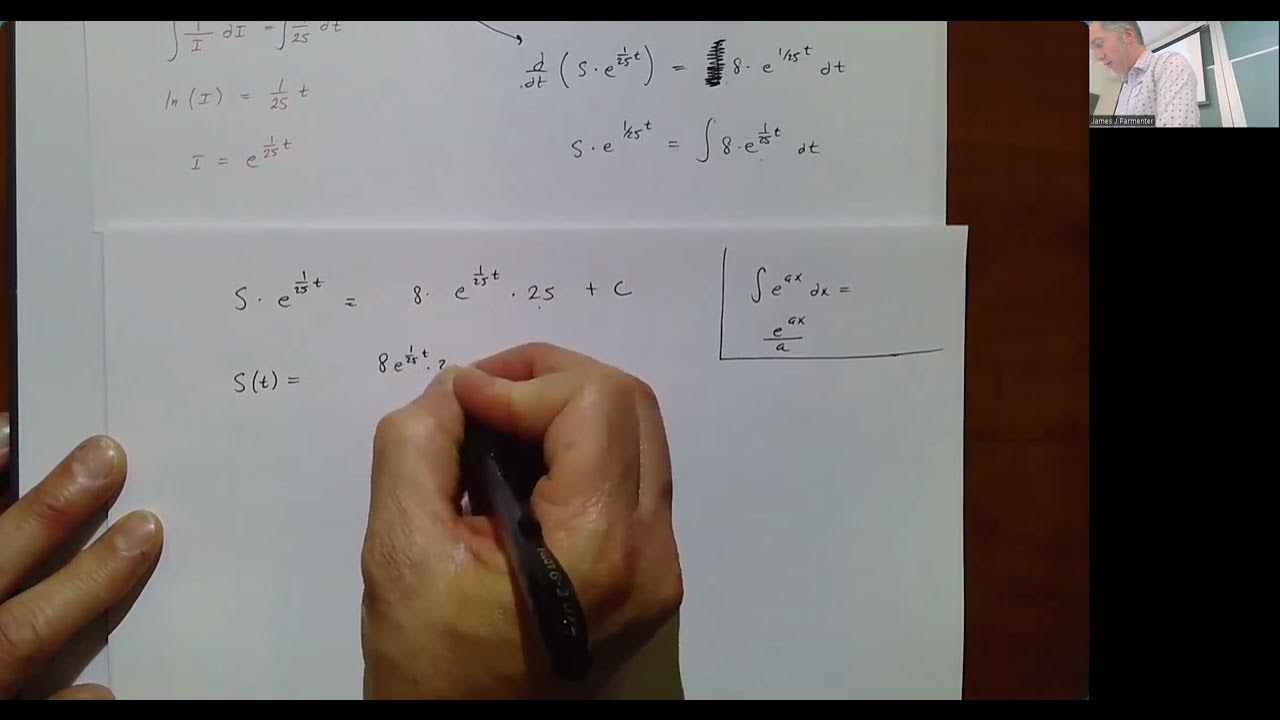 ∫ 1/I dI = ∫ 1/25 dt
ln(I) = 1/25 t
I = e^(1/25 t)
d/dt (S · e^(1/25 t)) = 8 · e^(1/25 t) dt
S · e^(1/25 t) = ∫ 8 · e^(1/25 t) dt
S · e^(1/25 t) = 8 · e^(1/25 t) · 25 + C
S(t) = 8e^(1/25 t) · 2
∫ e^(ax) dx =
e^(ax)/a
James J Parmenter